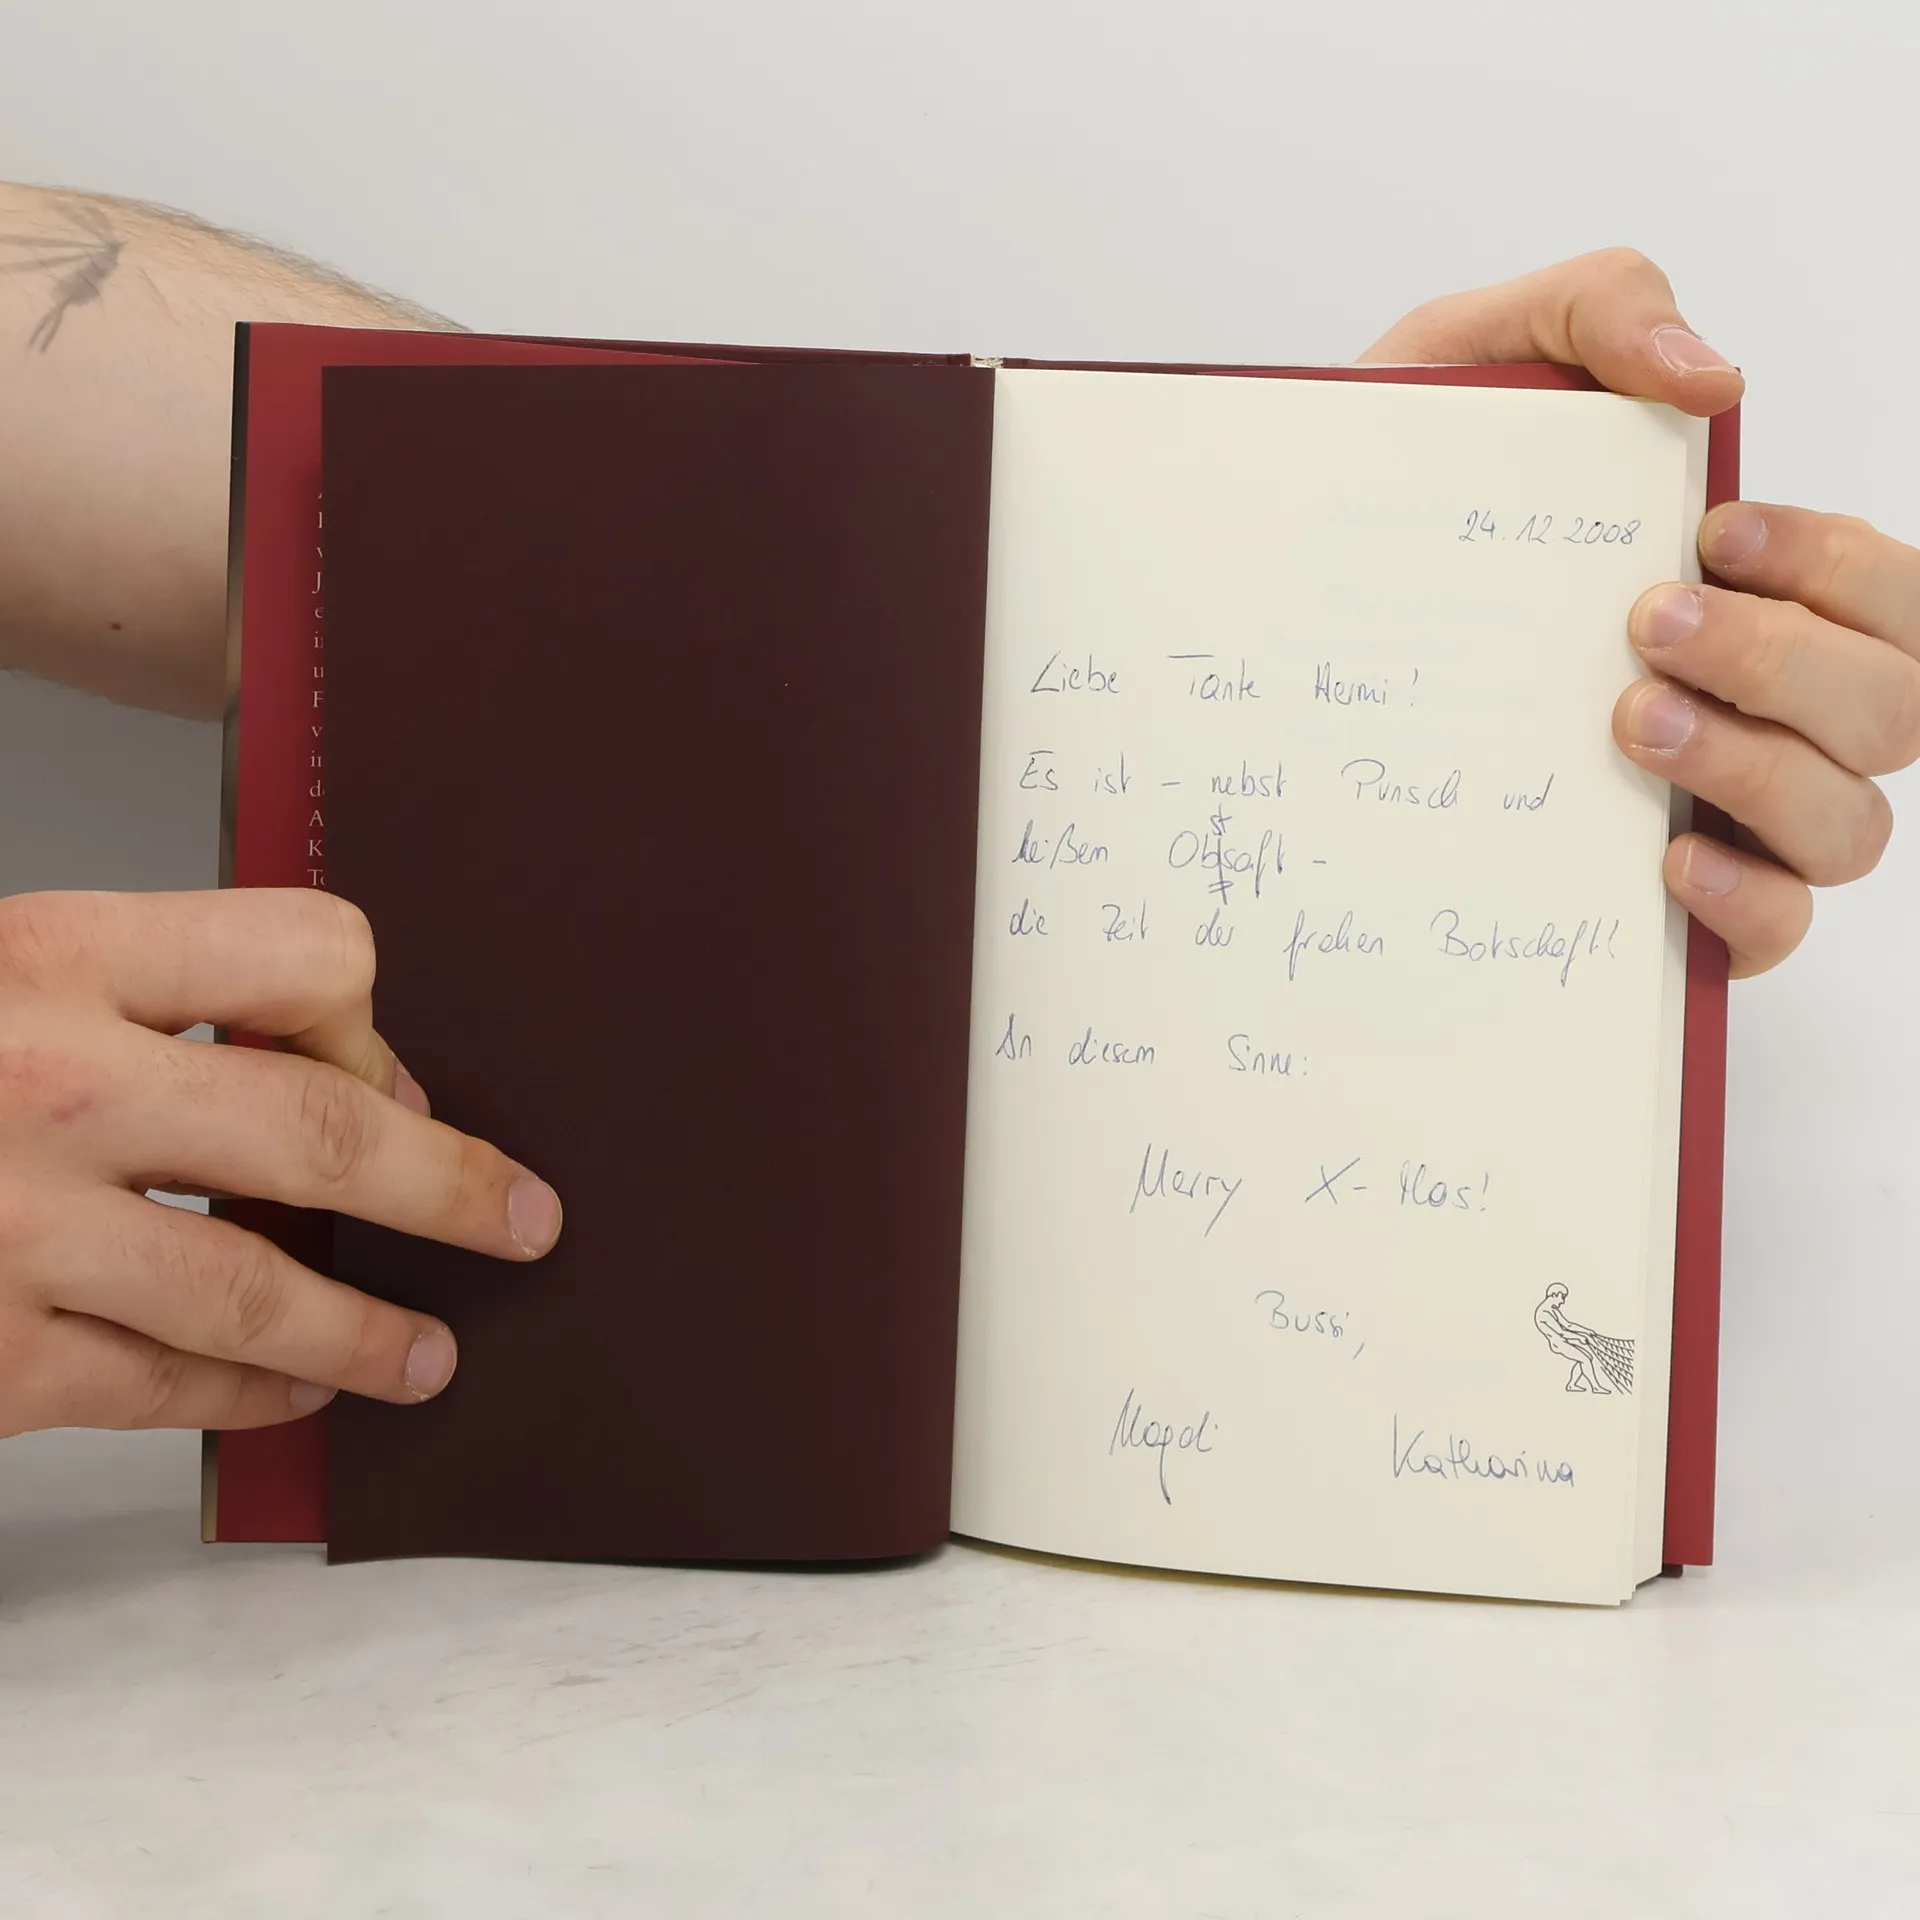 J
K
24.12.2008
Liebe Tante Hermi!
Es ist - nebst Punsch und
heißem Obstsaft -
die Zeit der frohen Botschaft!
In diesem Sinne:
Merry X-Mas!
Bussi,
Magdi Katharina